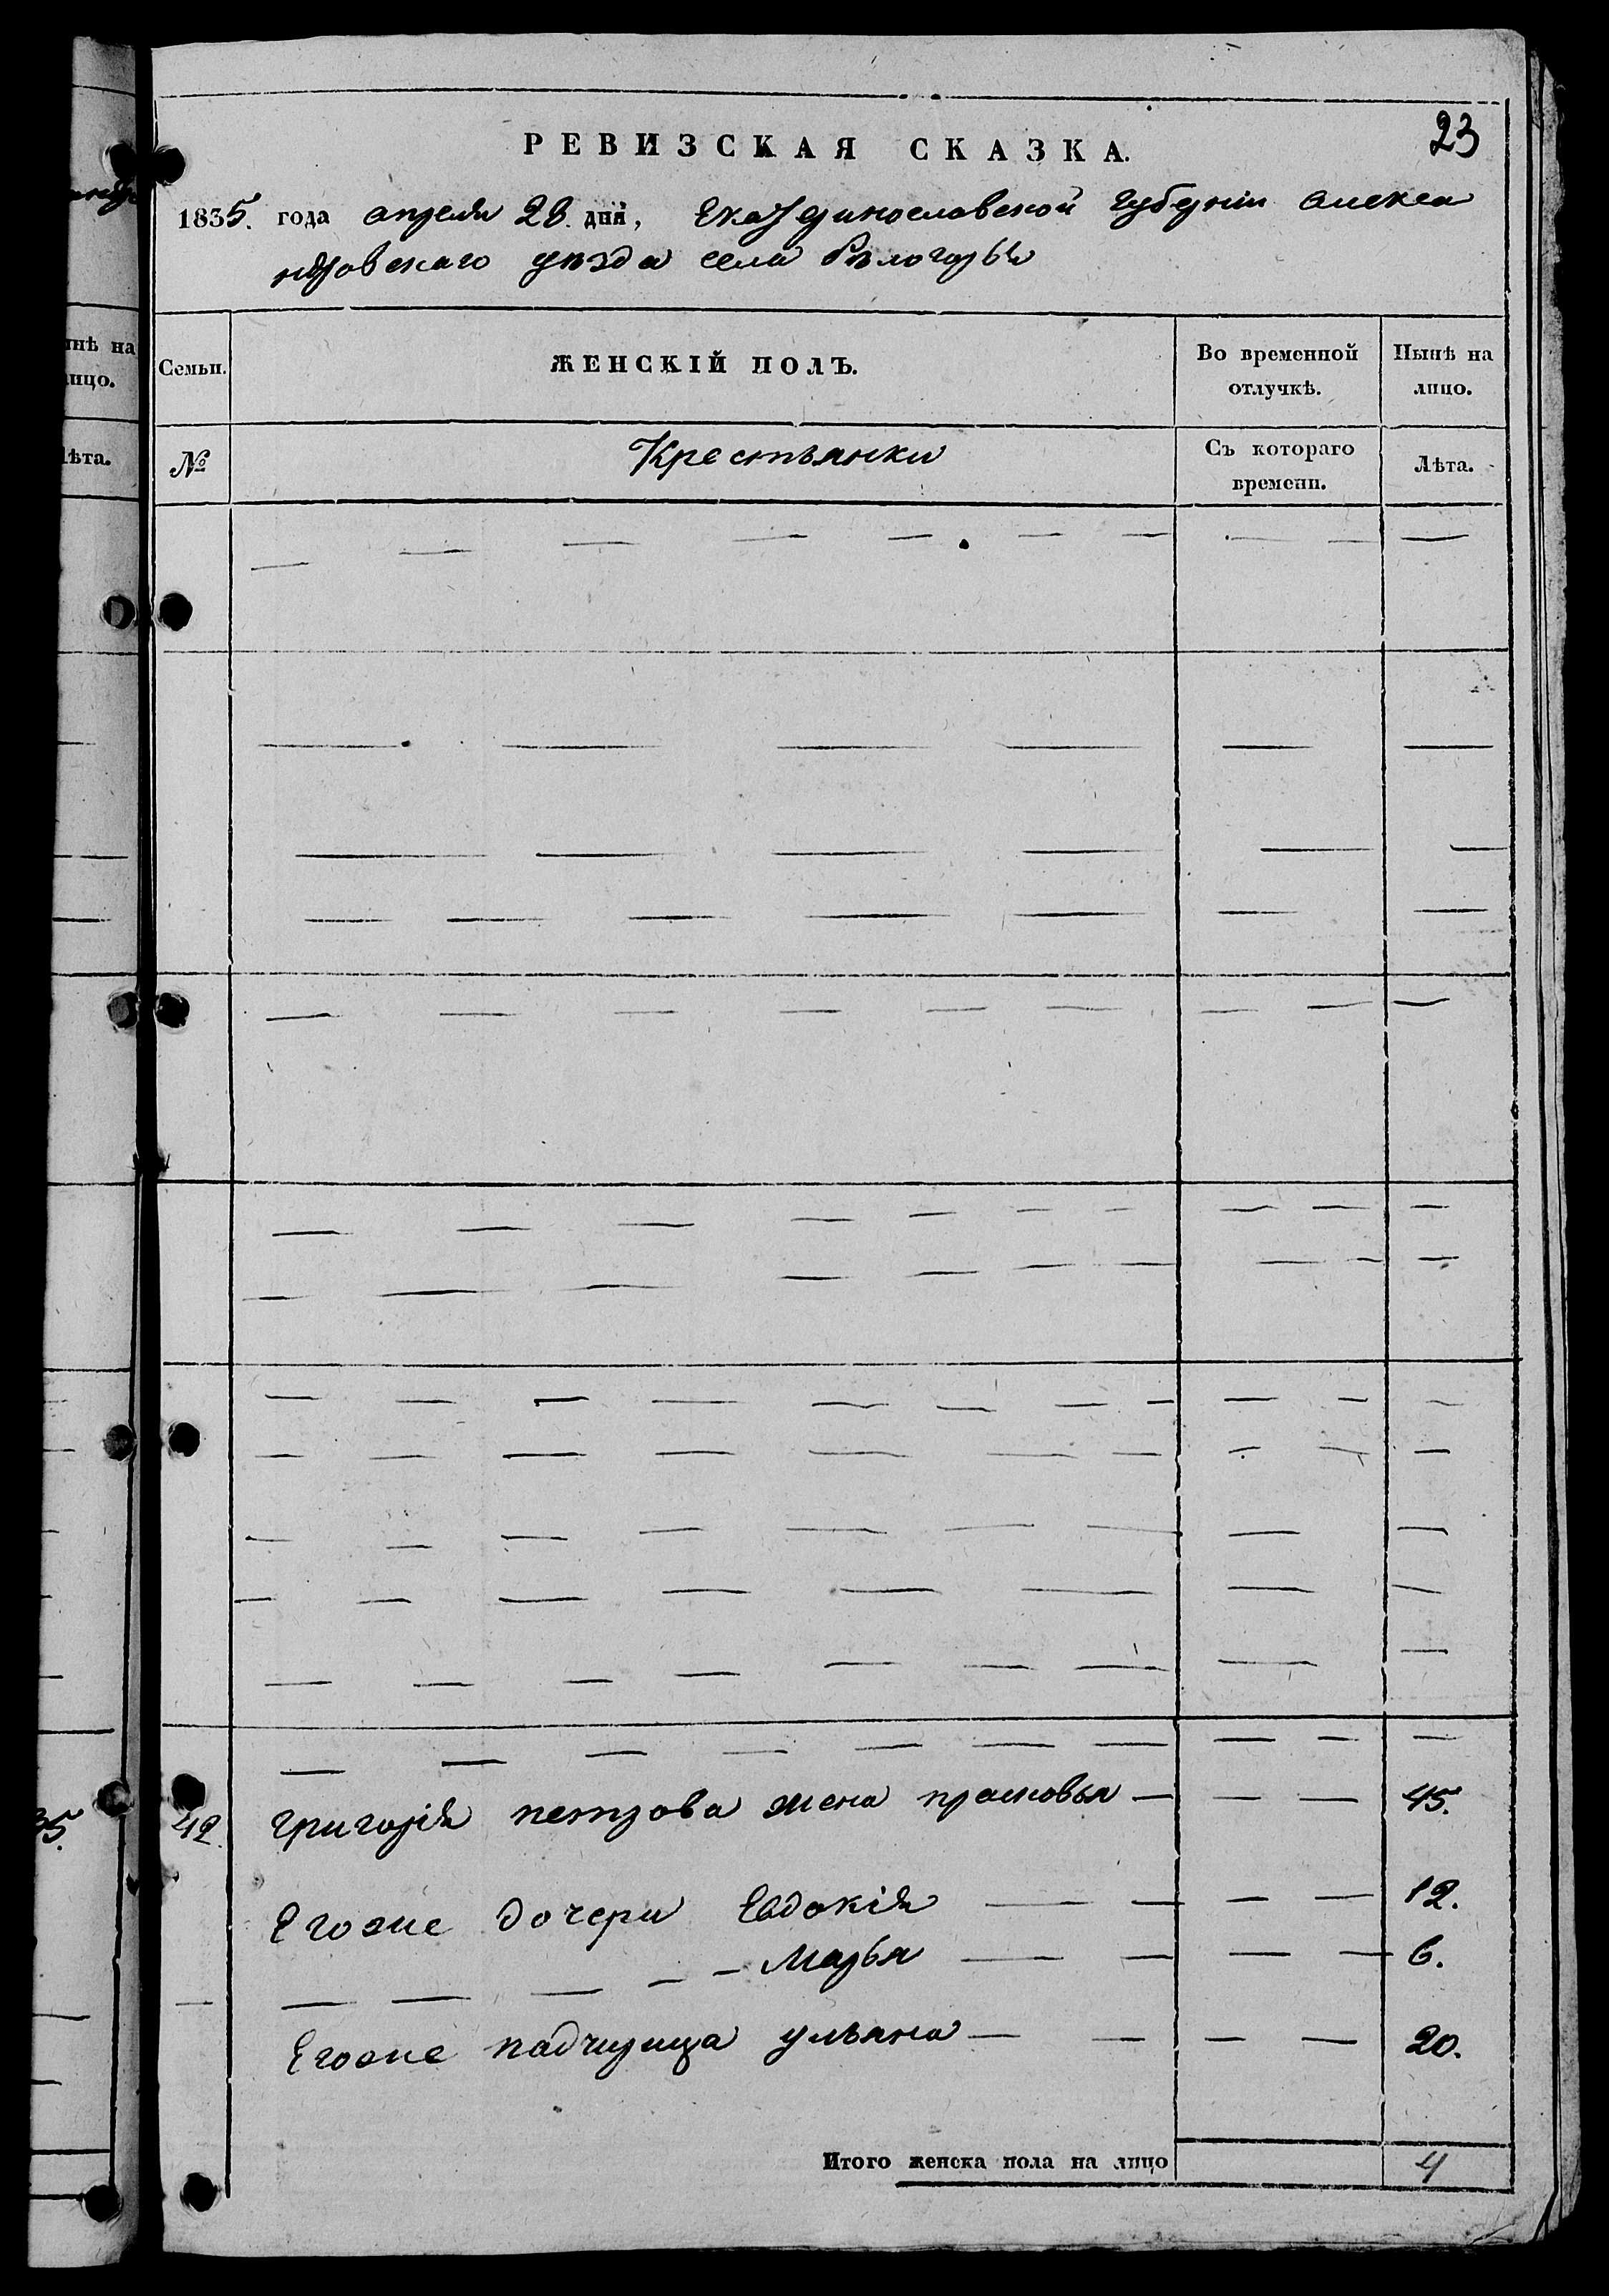 23
РЕВИЗСКАЯ СКАЗКА.
1835. года апреля 28. дня, Екатеринославской губерніи Алекса
ндровскаго уѣзда села Бѣлогорья
Семьи.
ЖЕНСКІЙ ПОЛЪ.
Во временной отлучкѣ.
Нынѣ на лицо.
№
Крестьянки
Съ котораго времени.
Лѣта.
42. григорія петрова жена прасковья — — — 45.
Егоже дочери Евдокія — — — — 12.
— — — — — Марья — — — — 6.
Егоже падчирица ульяна — — — — 20.
Итого женска пола на лицо 4